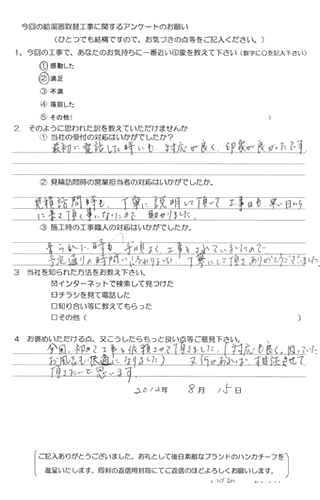 今回の給湯器取替工事に関するアンケートのお願い
(ひとつでも結構ですので、お気づきの点等をご記入ください。)
1、今回の工事で、あなたのお気持ちに一番近い印象を教えて下さい(数字に○を記入下さい)
① 感動した
② 満足
③ 不満
④ 落胆した
⑤ その他( )
2. そのように思われた訳を教えていただけませんか
① 当社の受付の対応はいかがでしたか?
最初に電話した時にも、対応が良く、印象が良かったです
② 見積訪問時の営業担当者の対応はいかがでしたか。
見積訪問時も、丁寧に説明して頂いて 工事日も 早い日から
に来て頂く事になりたので 助かりました。
③ 施工時の工事職人の対応はいかがでしたか。
手順よく、工事をされていましたので
予定通りの時間に 丁寧にして頂きありがとうございました
3 当社を知られた方法をお教え下さい。
☑インターネットで検索して見つけた
□チラシを見て電話した
□知り合い等に教えてもらった
□その他( )
4 お褒めいただける点、又こうしたらもっと良い点等ご意見下さい。
今回、初めて工事を依頼させて頂きました。(対応も良く、困っていた
お風呂も快適になりました) 又何かあれば 相談させて
頂きたいと思います。
2012年 8月 15日
ご記入ありがとうございました。お礼として後日素敵なブランドのハンカチーフを
進呈いたします。同封の返信用封筒にてご返信のほどよろしくお願いします。